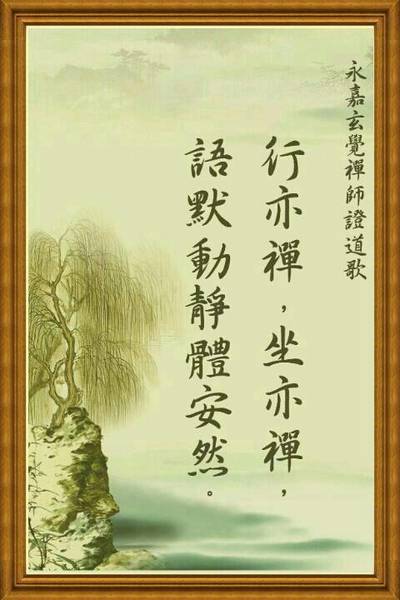 永嘉玄覺禪師證道歌
行亦禪，坐亦禪，
語默動靜體安然。